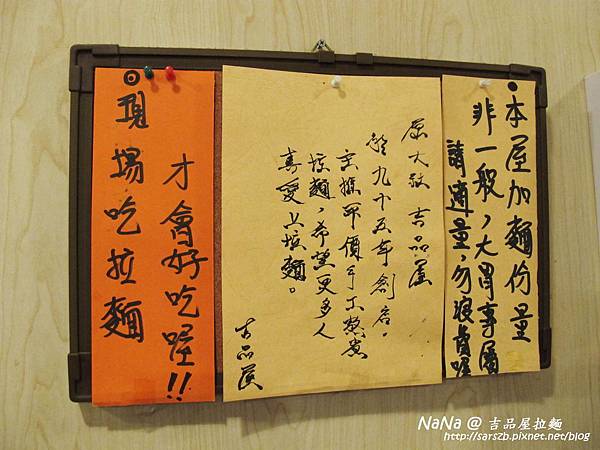 ●本屋加麵份量
非一般，大胃事屬
請適量，勿浪費喔
原大政 吉品屋
於九十五年創店。
拉麵，希望更多人
喜愛上拉麵。
吉品屋
◎現場吃拉麵
才會好吃喔!!
NaNa @ 吉品屋拉麵
http://sarszb.pixnet.net/blog